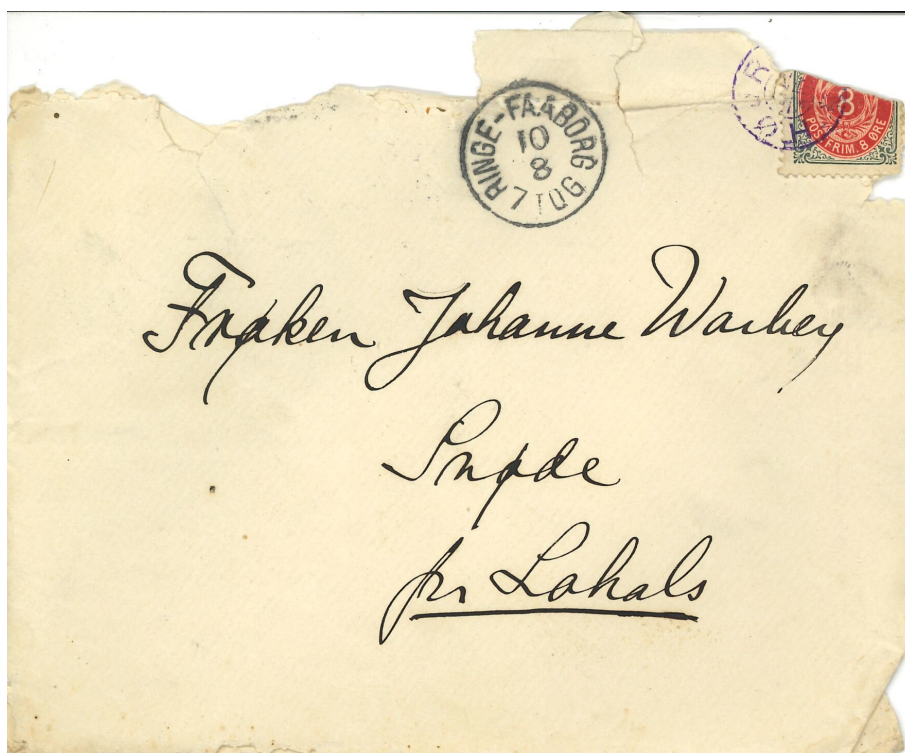 RINGE-FAABORG
10
8
7 TOG
8
POSTFRIM. 8 ØRE
Frøken Johanne Warberg
Snøde
pr Lohals